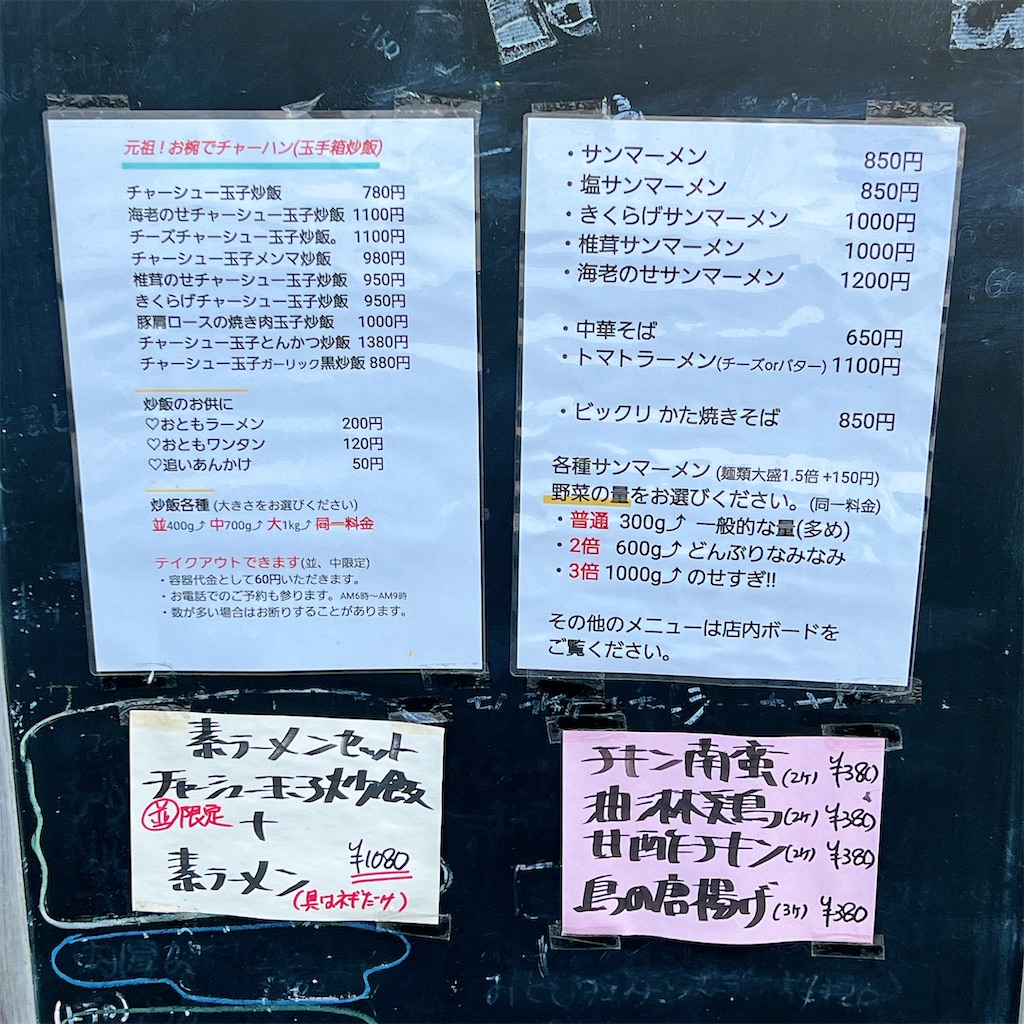 元祖！お椀でチャーハン(玉手箱炒飯)
チャーシュー玉子炒飯 780円
海老のせチャーシュー玉子炒飯 1100円
チーズチャーシュー玉子炒飯。 1100円
チャーシュー玉子メンマ炒飯 980円
椎茸のせチャーシュー玉子炒飯 950円
きくらげチャーシュー玉子炒飯 950円
豚肩ロースの焼き肉玉子炒飯 1000円
チャーシュー玉子とんかつ炒飯 1380円
チャーシュー玉子ガーリック黒炒飯 880円
炒飯のお供に
♡おともラーメン 200円
♡おともワンタン 120円
♡追いあんかけ 50円
炒飯各種 (大きさをお選びください)
並400g⤴ 中700g⤴ 大1kg⤴ 同一料金
テイクアウトできます(並、中限定)
・容器代金として60円いただきます。
・お電話でのご予約も参ります。AM6時〜AM9時
・数が多い場合はお断りすることがあります。
・サンマーメン 850円
・塩サンマーメン 850円
・きくらげサンマーメン 1000円
・椎茸サンマーメン 1000円
・海老のせサンマーメン 1200円
・中華そば 650円
・トマトラーメン(チーズorバター) 1100円
・ビックリ かた焼きそば 850円
各種サンマーメン (麺類大盛1.5倍 +150円)
野菜の量をお選びください。(同一料金)
・普通 300g⤴ 一般的な量(多め)
・2倍 600g⤴ どんぶりなみなみ
・3倍 1000g⤴ のせすぎ!!
その他のメニューは店内ボードを
ご覧ください。
素ラーメンセット
チャーシュー玉子炒飯
並限定 +
素ラーメン ¥1080
(具はネギだけ)
チキン南蛮(2ケ) ¥380
油淋鶏(2ケ) ¥380
甘酢チキン(2ケ) ¥380
鳥の唐揚げ(3ケ) ¥380